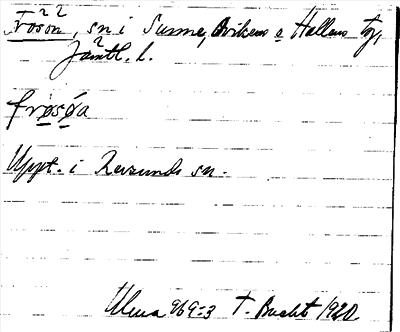 Frösön, sn i Sunne, Ovikens o Hallens tg,
Jämtl. l.
frøsǿa
Uppt. i Revsunds sn.
Ulma 969:3 T. Bucht 1920